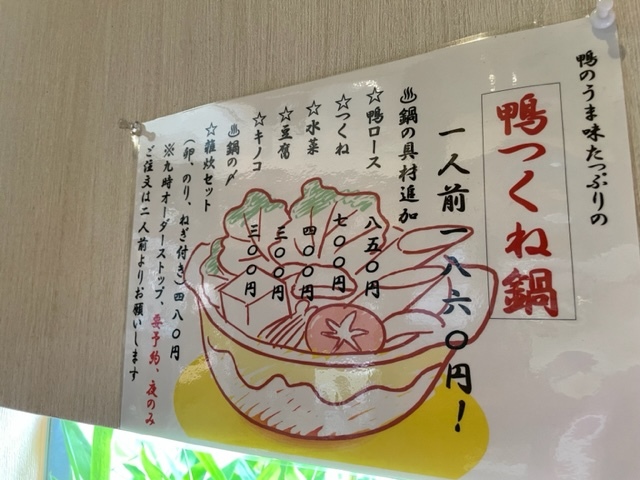 鴨のうま味たっぷりの
鴨つくね鍋
一人前一八六〇円！
♨鍋の具材追加
☆鴨ロース 八五〇円
☆つくね 七〇〇円
☆水菜 四〇〇円
☆豆腐 三〇〇円
☆キノコ 三〇〇円
♨鍋の〆
☆雑炊セット
(卵、のり、ねぎ付き)四八〇円
※九時オーダーストップ、要予約、夜のみ
ご注文は二人前よりお願いします